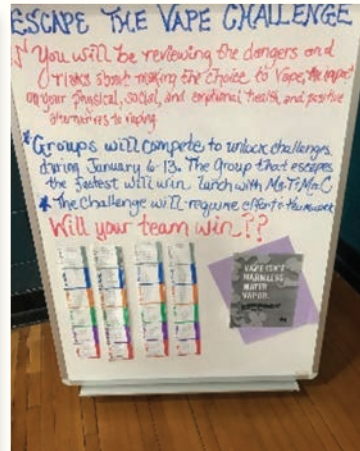 ESCAPE THE VAPE CHALLENGE
You will be reviewing the dangers and
risks about making the choice to Vape, the impact
on your physical, social, and emotional health, and positive
alternatives to vaping.
*Groups will compete to unlock challenges
during January 6-13. The Group that escapes
the fastest will win lunch with
* The Challenge will require effort &
Will your team win??
VAPE ISN'T
HARMLESS
WATER
VAPOR.